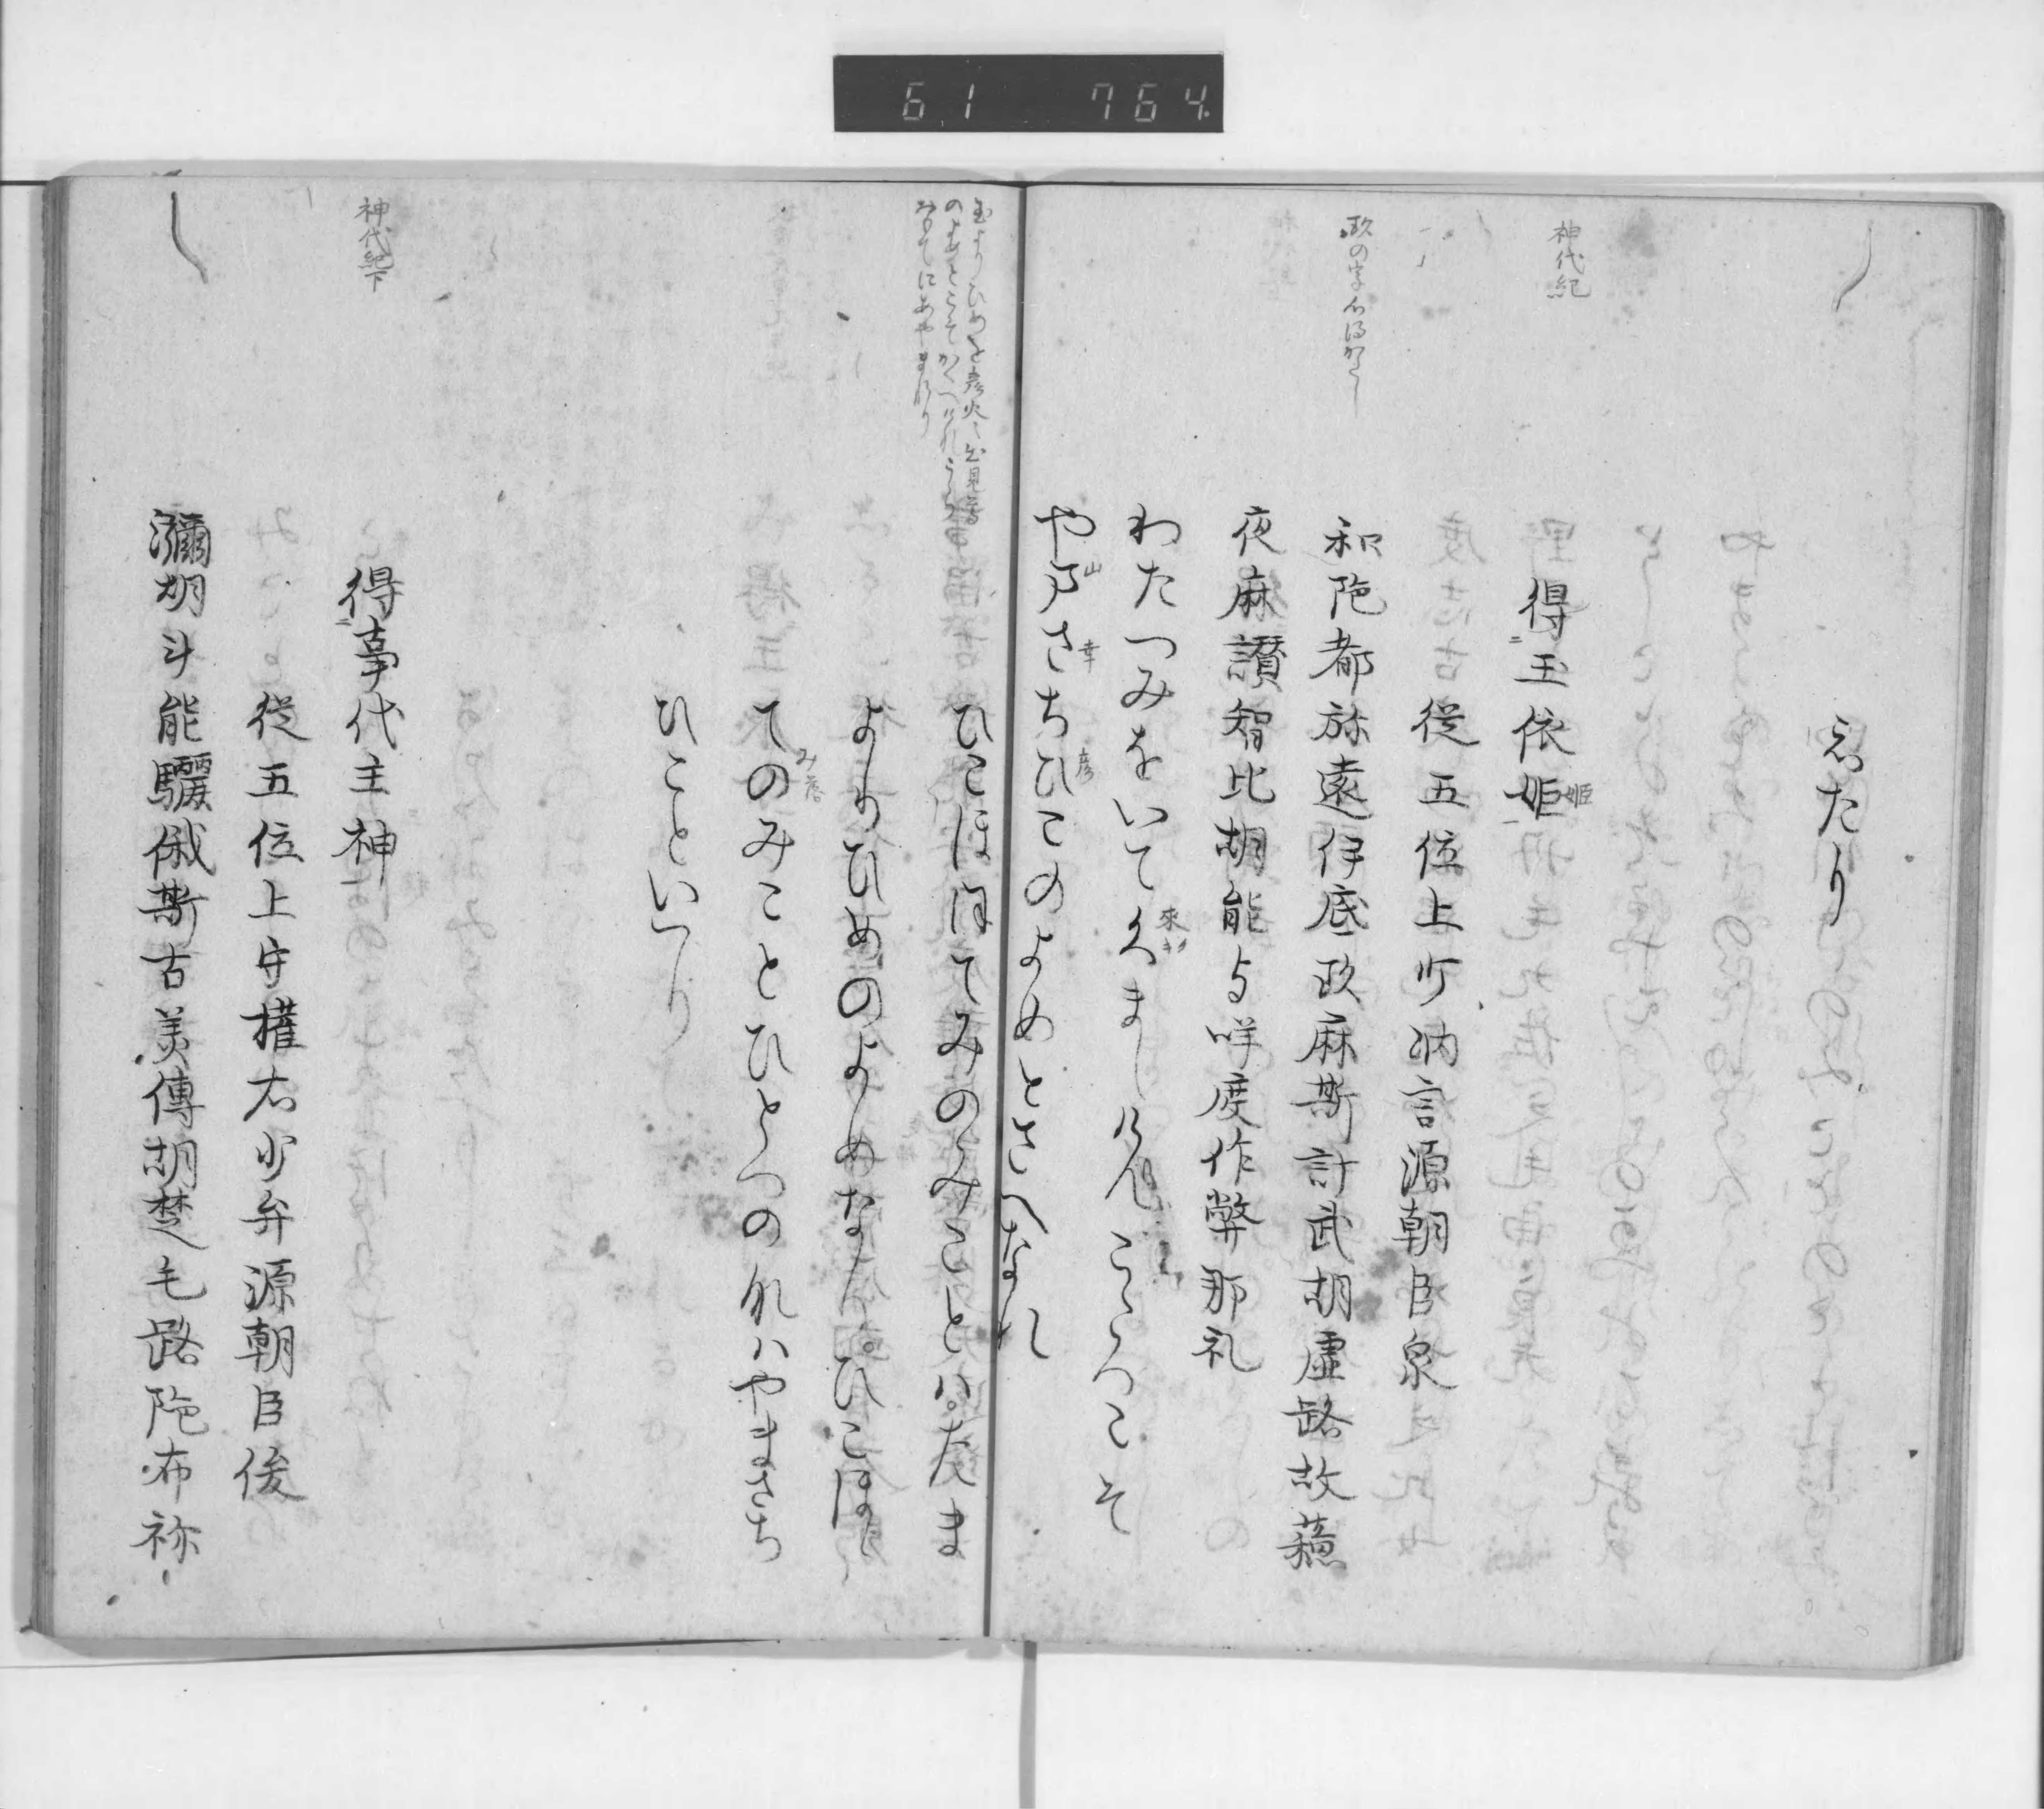 61 764
忘たり
神代紀
得玉依姫
姫
従五位上少納言源朝臣泉
政の字心得かたし
和陁都旀遠伊底政麻斯計武胡虚路故蘓
夜麻讃智比胡能与咩度作弊那礼
わたつみをいてくましけんこゝろこそ
來
やまさちひこのよめとさへなれ
山 幸 彦
玉よりひめを彦火々出見尊
ひこほほてみのみことは。たま
よりひめのよめなり。ひこほほ
てのみことひとつの名ハやまさち
ひこといへり
神代紀下
得事代主神
従五位上守権右少弁源朝臣俊
瀰胡斗能驪俄斯古美傳胡楚毛路陁布祢